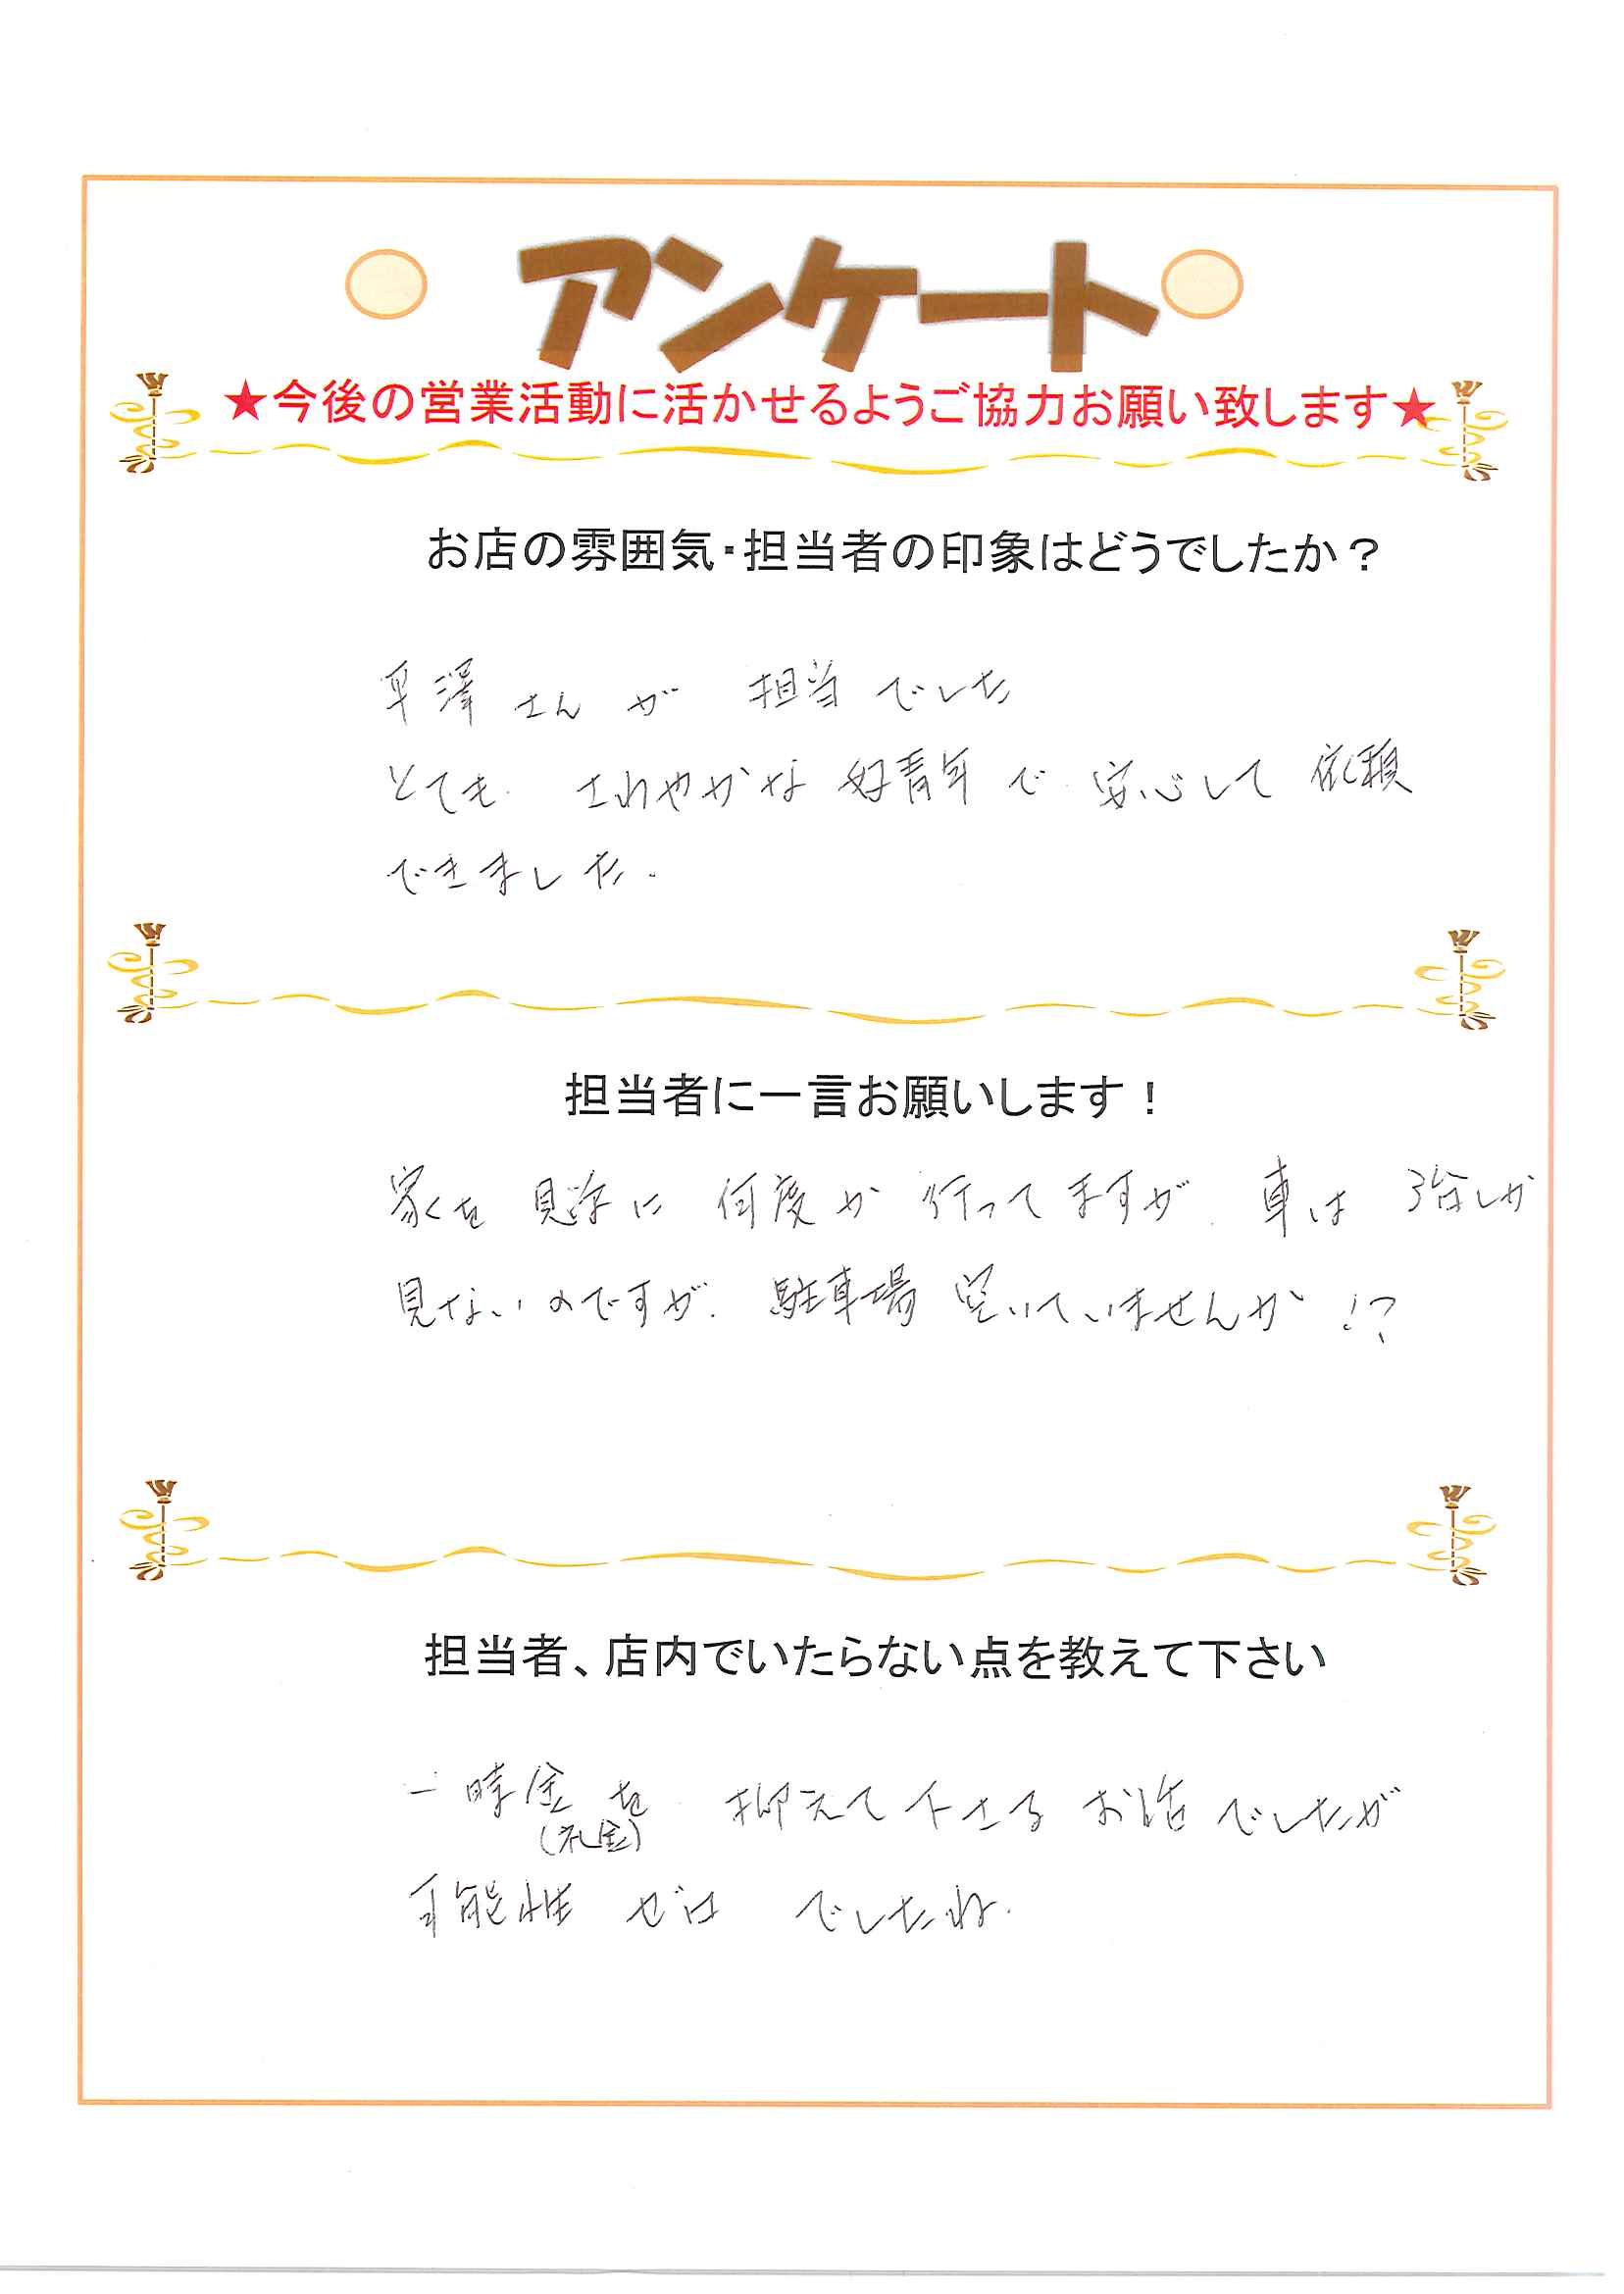 アンケート
★今後の営業活動に活かせるようご協力お願い致します★
お店の雰囲気・担当者の印象はどうでしたか？
平澤さんが 担当でした
とても さわやかな 好青年で 安心して 依頼
できました.
担当者に一言お願いします！
家を 見学に 何度か 行ってますが 車は 3台しか
見ないのですが. 駐車場 空いていませんか!?
担当者、店内でいたらない点を教えて下さい
一時金を 抑えて下さる お話でしたが
(礼金)
可能性 ゼロ でしたね.